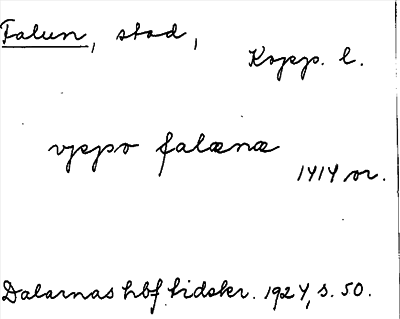 Falun, stad,
Kopp. l.
vppo falænæ
1414 or.
Dalarnas hbf tidskr. 1924, s. 50.